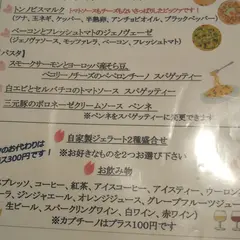 トンノビスマルク
(ツナ、玉ネギ、ケッパー、半熟卵、アンチョビオイル、ブラックペッパー)
ベーコンとフレッシュトマトのジェノヴェーゼ
(ジェノヴァソース、モッツァレラ、ベーコン、フレッシュトマト)
パスタ】
スモークサーモンとヨーロッパ産そら豆、
ペコリーノチーズのペペロンチーノ スパゲッティー
白エビとセルバチコのトマトソース スパゲッティー
三元豚のボロネーゼクリームソース ペンネ
※ペンネをスパゲティーに変更できます
自家製ジェラート2種盛合せ
※お好きなものを2つお選び下さい
のお代わりは
ス300円です!
お飲み物
プレッソ、コーヒー、紅茶、アイスコーヒー、アイスティー、ウーロン
ラ、ジンジャエール、オレンジジュース、グレープフルーツジュー
生ビール、スパークリングワイン、白ワイン、赤ワイン)
※カプチーノはプラス100円です